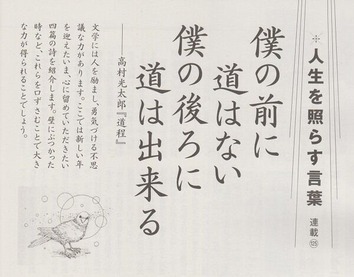 ※人生を照らす言葉 連載㉟
僕の前に
道はない
僕の後ろに
道は出来る
――高村光太郎『道程』
文学には人を励まし、勇気づける不思
議な力があります。ここでは新しい年
を迎えたいま、心に留めていただきたい
四篇の詩を紹介します。壁にぶつかった
時など、これらを口ずさむことで大き
な力が得られることでしょう。